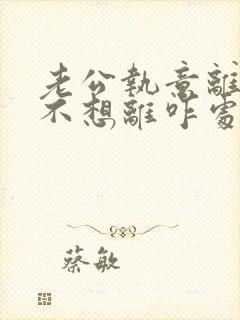 老公執意離
不想離咋處
蔡敏